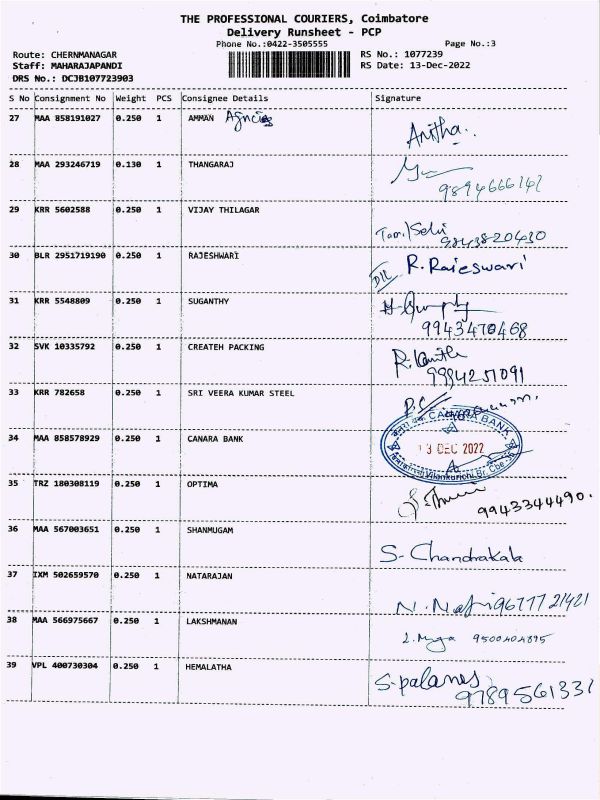 THE PROFESSIONAL COURIERS, Coimbatore
Delivery Runsheet - PCP
Phone No.:0422-3505555 Page No.:3
Route: CHERNMANAGAR RS No.: 1077239
Staff: MAHARAJAPANDI RS Date: 13-Dec-2022
DRS No.: DCJB107723903
S No Consignment No Weight PCS Consignee Details Signature
27 MAA 858191027 0.250 1 AMMAN Anitha.
28 MAA 293246719 0.130 1 THANGARAJ
9894666142
29 KRR 5602588 0.250 1 VIJAY THILAGAR
Tamil Selvi 9843820430
30 BLR 2951719190 0.250 1 RAJESHWARI R. Rajeswari
31 KRR 5548809 0.250 1 SUGANTHY
9943470468
32 SVK 10335792 0.250 1 CREATEH PACKING
9994251091
33 KRR 782658 0.250 1 SRI VEERA KUMAR STEEL
34 MAA 858578929 0.250 1 CANARA BANK CANARA BANK
13 DEC 2022
35 TRZ 180308119 0.250 1 OPTIMA
9943344490.
36 MAA 567003651 0.250 1 SHANMUGAM
S. Chandrakala
37 IXM 502659570 0.250 1 NATARAJAN
9677721421
38 MAA 566975667 0.250 1 LAKSHMANAN
9500404895
39 VPL 400730304 0.250 1 HEMALATHA S. palanes
9789561331